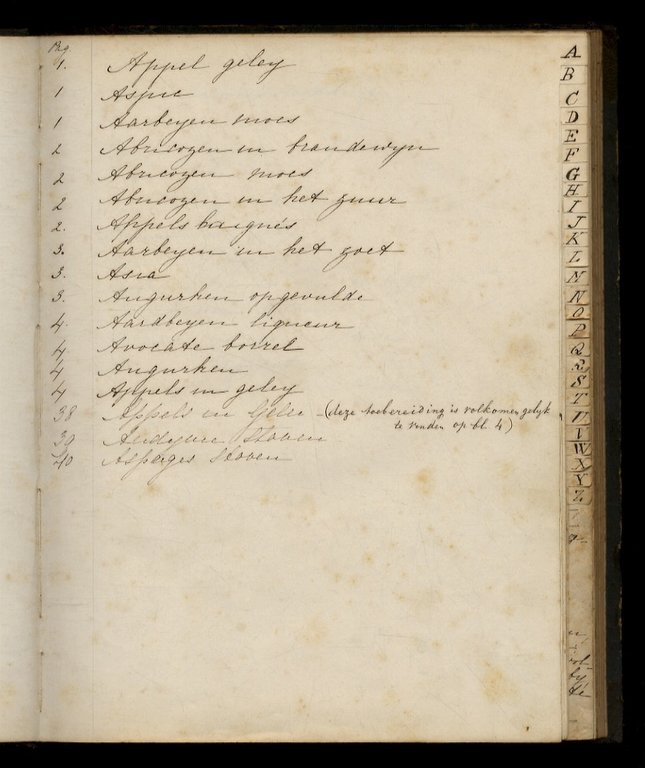 Pag.
1. Appel geley
1 Aspic
1 Aarbeyen moes
2 Abricozen in brandewyn
2 Abricozen moes
2 Abricozen in het zuur
2. Appels baignés
3. Aarbeyen in het zoet
3. Asia
3. Augurken opgevulde
4. Aardbeyen liqueur
4 Avocate borrel
4 Augurken
4 Appels in geley
38 Appels in Gelei (deze toebereiding is volkomen gelyk
te vinden op bl. 4)
39 Andyvie stoven
40 Asperges stoven
A
B
C
D
E
F
G
H
I
J
K
L
M
N
O
P
Q
R
S
T
U
V
W
X
Y
Z